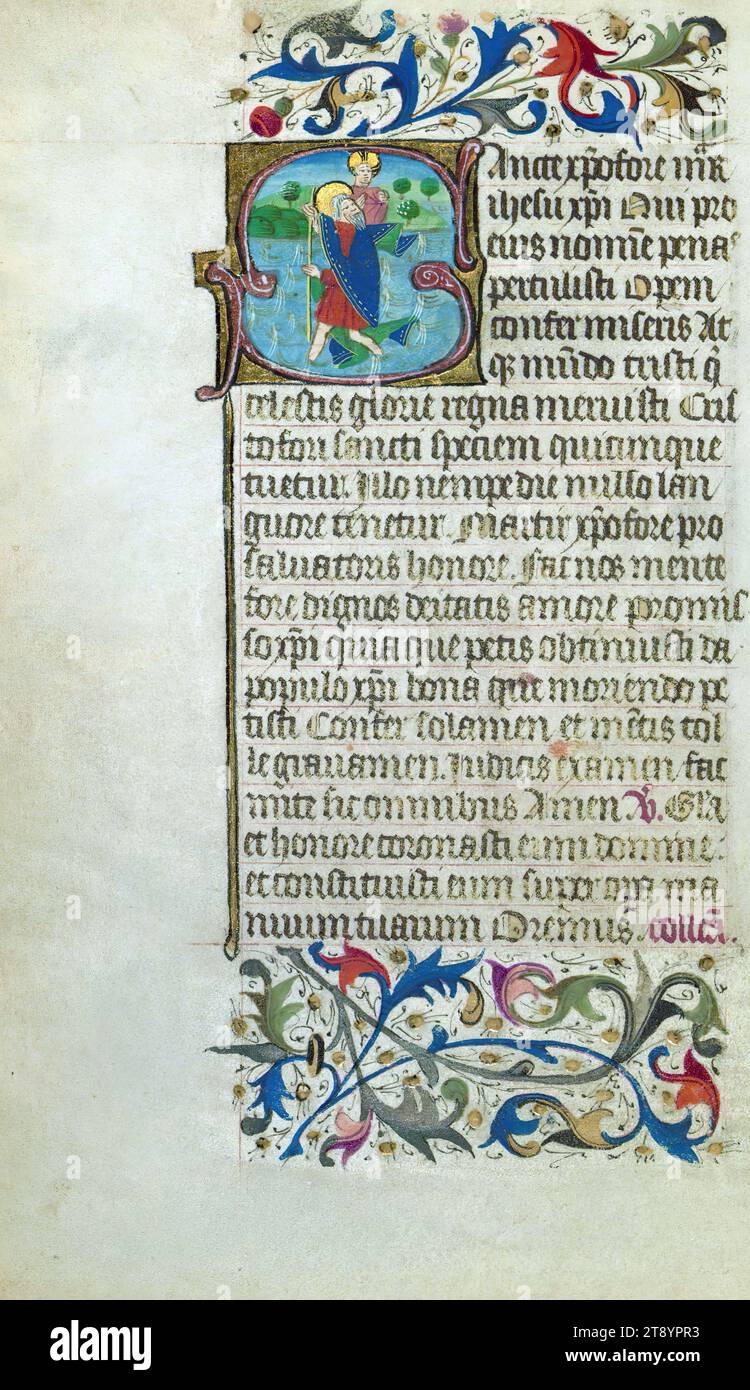 Sancte xp̄ofore m̄r
ihesu xp̄i Qui pro
eius nomine pena
pertulisti Opem
confer miseris At
q̄ mūdo tristi q̄
celestis glorie regna meruisti Cris
tofori sancti speciem quicumque
tuetur. Illo nempe die nullo lan
guore tenetur. Martir xp̄ofore pro
saluatoris honore. Fac nos mente
fore dignos deitatis amore promis
so xp̄i quia que petis obtinuisti da
populo xp̄i bona que moriendo pe
tisti Confer solamen et mētis tol
le grauamen. Iudicis examen fac
mite sit omnibus Amen V̄. Gl̄ia
et honore coronasti eum domine.
et constituisti eum super opa ma
nuum tuarum Oremus. collc̄a.
alamy
Image ID: 2T8YPR3
www.alamy.com